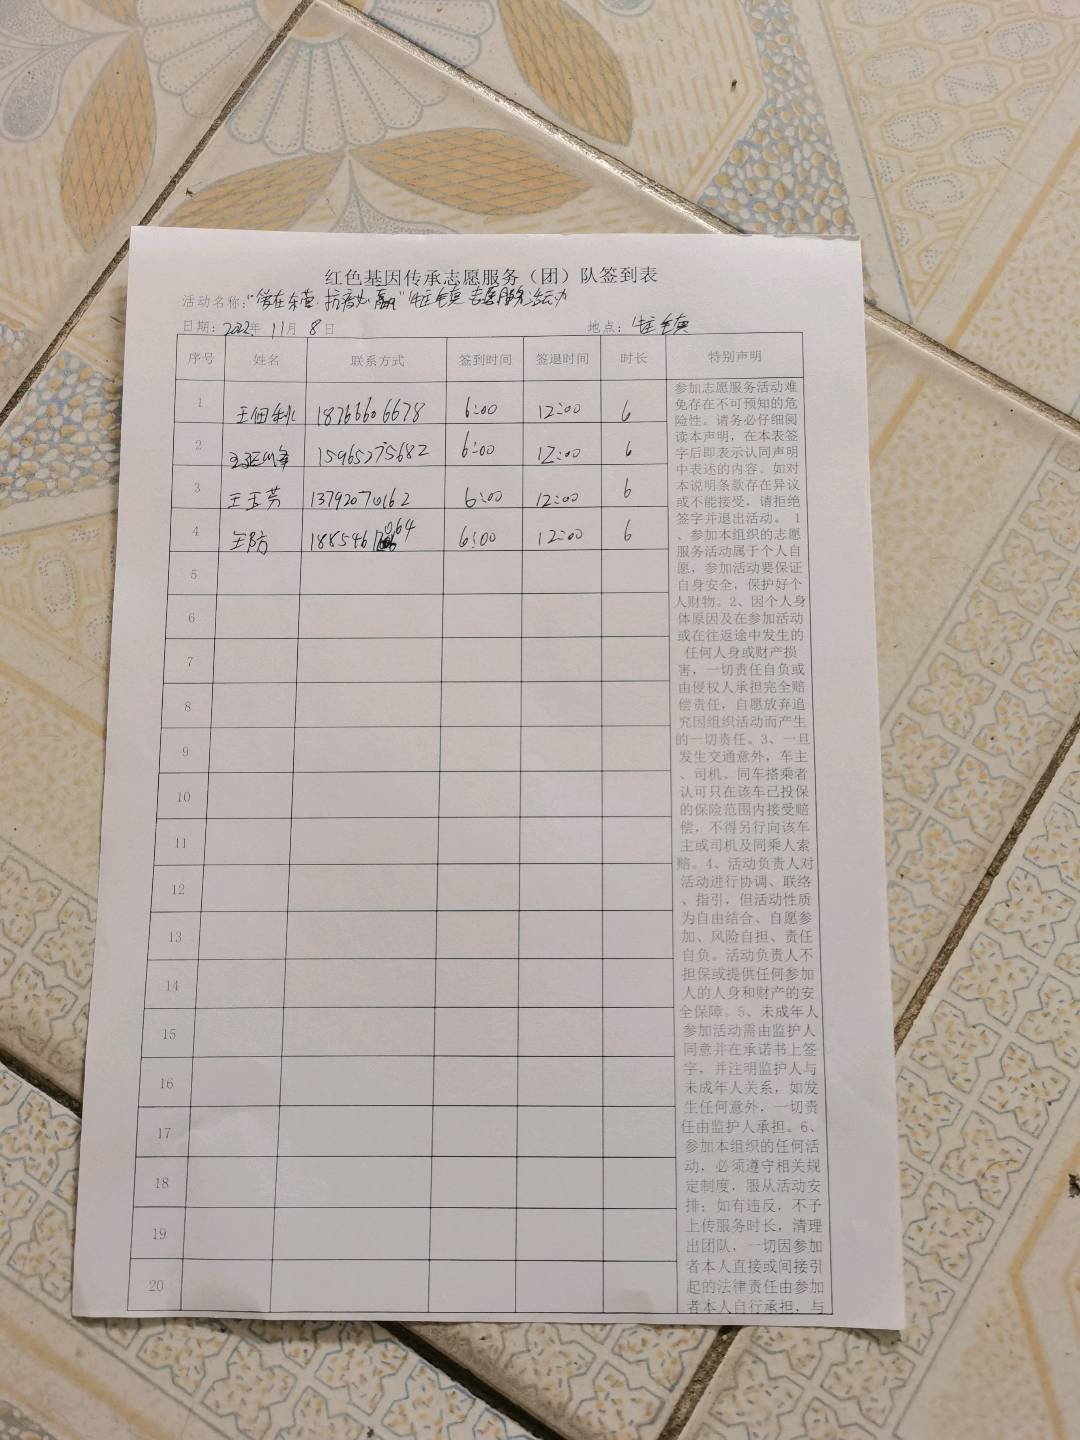 红色基因传承志愿服务（团）队签到表
活动名称："爱在东营·抗疫必赢"牛庄镇志愿服务活动
日期：2022年 11月 8日 地点：牛庄镇
序号 姓名 联系方式 签到时间 签退时间 时长 特别声明
1 王田 18766606678 6:00 12:00 6
2 15965275682 6:00 12:00 6
3 王玉芳 13792070162 6:00 12:00 6
4 王防 1885461 064 6:00 12:00 6
5
6
7
8
9
10
11
12
13
14
15
16
17
18
19
20
参加志愿服务活动难
免存在不可预知的危
险性。请务必仔细阅
读本声明，在本表签
字后即表示认同声明
中表述的内容。如对
本说明条款存在异议
或不能接受，请拒绝
签字并退出活动。 1
、参加本组织的志愿
服务活动属于个人自
愿，参加活动要保证
自身安全，保护好个
人财物。2、因个人身
体原因及在参加活动
或在往返途中发生的
任何人身或财产损
害，一切责任自负或
由侵权人承担完全赔
偿责任，自愿放弃追
究因组织活动而产生
的一切责任。3、一旦
发生交通意外，车主
、司机、同车搭乘者
认可只在该车已投保
的保险范围内接受赔
偿，不得另行向该车
主或司机及同乘人索
赔。4、活动负责人对
活动进行协调、联络
、指引，但活动性质
为自由结合、自愿参
加、风险自担、责任
自负。活动负责人不
担保或提供任何参加
人的人身和财产的安
全保障。5、未成年人
参加活动需由监护人
同意并在承诺书上签
字，并注明监护人与
未成年人关系，如发
生任何意外，一切责
任由监护人承担。6、
参加本组织的任何活
动，必须遵守相关规
定制度，服从活动安
排；如有违反，不予
上传服务时长，清理
出团队，一切因参加
者本人直接或间接引
起的法律责任由参加
者本人自行承担，与